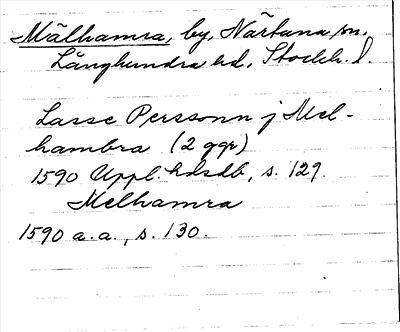 Mälhamra, by, Närtuna sn,
Långhundra hd, Stockh. l.
Lasse Perssonn j Mel-
hambra (2 ggr)
1590 Uppl. hdsdb, s. 129.
Melhamra
1590 a.a., s. 130.